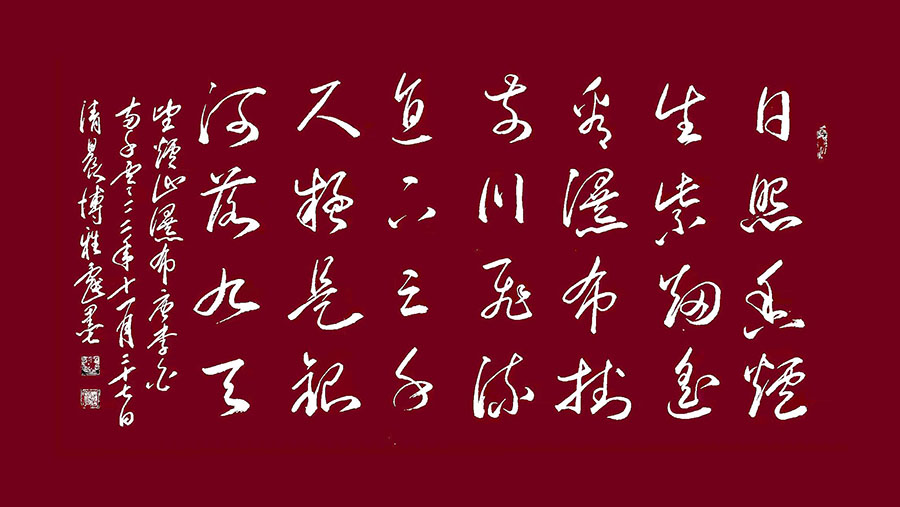 日照香爐
生紫烟遙
看瀑布掛
前川飛流
直下三千
尺疑是銀
河落九天
望爐山瀑布唐李白
二二年十一月二十七日
清晨博雅墨